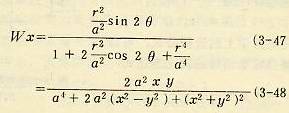 Wx = \frac{\frac{r^2}{a^2} sin 2 θ}{1 + 2 \frac{r^2}{a^2} cos 2 θ + \frac{r^4}{a^4}} (3-47
= \frac{2 a^2 x y}{a^4 + 2 a^2 (x^2 - y^2) + (x^2 + y^2)^2} (3-48